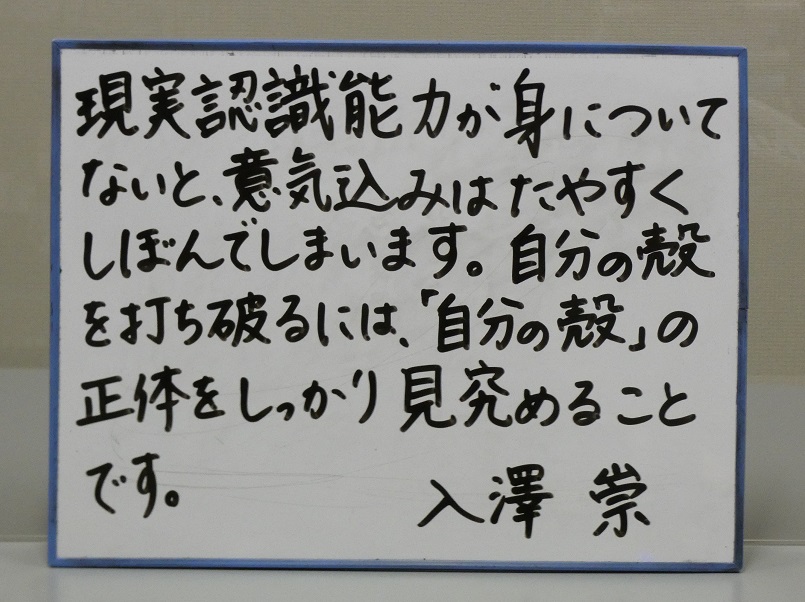 現実認識能力が身について
ないと、意気込みはたやすく
しぼんでしまいます。自分の殻
を打ち破るには、「自分の殻」の
正体をしっかり見究めること
です。 入澤 崇